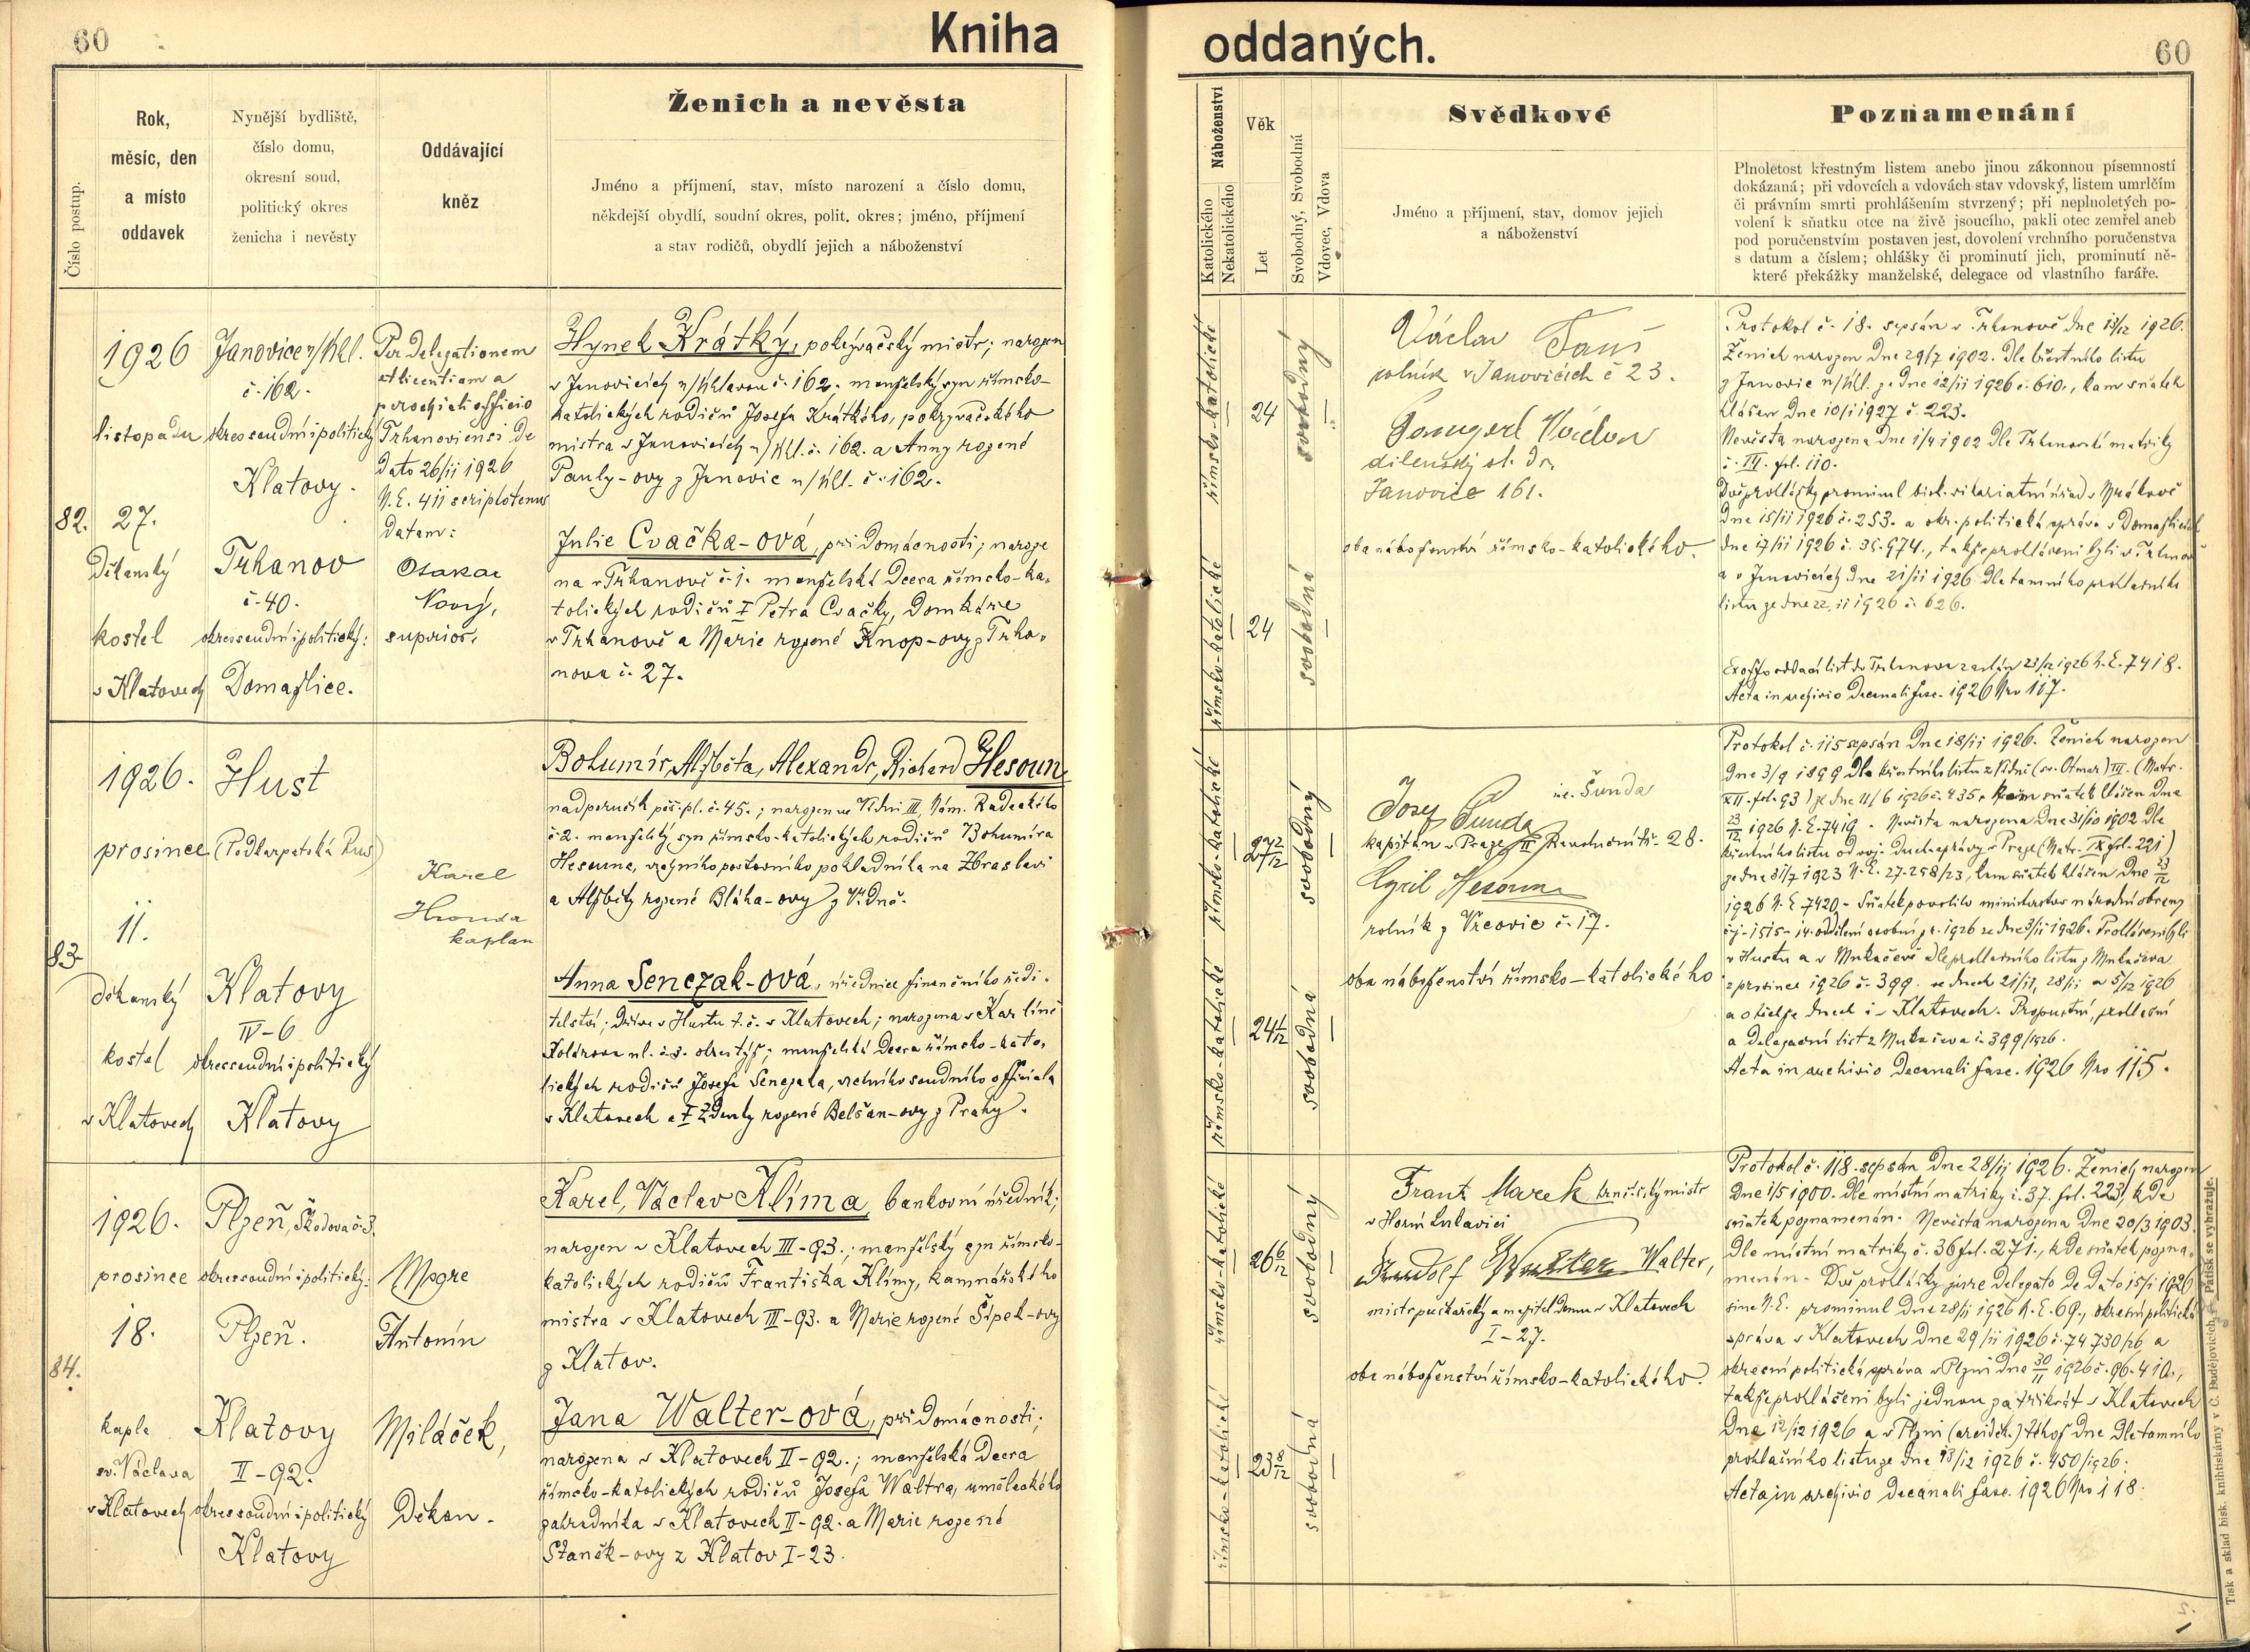 60
Kniha
oddaných.
60
Číslo postup.
Rok,
měsíc, den
a místo
oddavek
Nynější bydliště,
číslo domu,
okresní soud,
politický okres
ženicha i nevěsty
Oddávající
kněz
Ženich a nevěsta
Jméno a příjmení, stav, místo narození a číslo domu,
někdejší obydlí, soudní okres, polit. okres; jméno, příjmení
a stav rodičů, obydlí jejich a náboženství
Náboženství
Katolického
Nekatolického
Věk
Let
Svobodný, Svobodná
Vdovec, Vdova
Svědkové
Jméno a příjmení, stav, domov jejich
a náboženství
Poznamenání
Plnoletost křestným listem anebo jinou zákonnou písemností
dokázaná; při vdovcích a vdovách stav vdovský, listem umrlčím
či právním smrti prohlášením stvrzený; při neplnoletých po-
volení k sňatku otce na živě jsoucího, pakli otec zemřel aneb
pod poručenstvím postaven jest, dovolení vrchního poručenstva
s datum a číslem; ohlášky či prominutí jich, prominutí ně-
které překážky manželské, delegace od vlastního faráře.
82.
1926
listopadu
27.
Děkanský
kostel
v Klatovech
Janovice n/Úhl.
č. 162.
okres soudní i politický
Klatovy.
Trhanov
č. 40.
okres soudní i politický:
Domažlice.
Per Delegationem
et licentiam a
parochiali officio
Trhanoviensi De
Dato 26/11 1926
N.E. 411 scriptotenus
Datam:
Otakar
Nový,
superior.
Hynek Krátký, pokrývačský mistr; narozen
v Janovicích n/Úhlavou č. 162. manželský syn římsko-
katolických rodičů Josefa Krátkého, pokrývačského
mistra v Janovicích n/Úhl. č. 162. a Anny rozené
Pauly-ovy z Janovic n/Úhl. č. 162.
Julie Cvačka-ová, při Domácnosti; naroze
na v Trhanově č. 1. manželská Dcera římsko-ka-
tolických rodičů I Petra Cvačky, Domkáře
v Trhanově a Marie rozené Knop-ovy z Trha-
nova č. 27.
římsko-katolické
24
svobodný
římsko-katolické
24
svobodná
Václav
rolník v Janovicích č 23.
Václav
Janovice 161.
oba náboženství římsko-katolického.
Protokol č. 18. sepsán v Trhanově Dne 13/12 1926.
Ženich narozen Dne 29/7 1902. Dle křestního listu
z Janovic n/Úhl. ze Dne 12/11 1926 č. 610., kam sňatek
hlášen Dne 10/1 1927 č. 223.
Nevěsta narozena Dne 1/4 1902 Dle Trhanovské matriky
č. III. fol. 110.
Dvě prohlášky prominul bisk. vikariatní úřad v Mrákově
Dne 15/11 1926 č. 253. a okr. politická správa v Domažlicích
dne 17/11 1926 č. 36.974., takže prohlášeni byli v Trhanově
a v Janovicích Dne 21/11 1926 Dle tamního prohlašního
listu ze dne 22/11 1926 č. 626.
Ex offo oddací list do Trhanova zaslán 23/12 1926 N.E. 7418.
Acta in archivio Decanali fasc. 1926 Nro 117.
83.
1926.
prosince
11.
Děkanský
kostel
v Klatovech
Hust
(Podkarpatská Rus)
Klatovy
IV-6
okres soudní i politický
Klatovy
Karel
Hronda
kaplan
Bohumír, Alžběta, Alexandr, Richard Hesoun,
nadporučík pěš. pl. č. 45.; narozen ve Vídni III, Nám. Radeckého
č. 2. manželský syn římsko-katolických rodičů Bohumíra
Hesouna, vrchního poštovního pokladníka na Zbraslavi
a Alžběty rozené Bláha-ovy z Vídně.
Anna Senczak-ová, úřednice finančního ředi-
telství; Dříve v Hustu t. č. v Klatovech; narozena v Karlíně
Kolárova ul. č. 3. okres týž; manželská Dcera římsko-kato-
lických rodičů Josefa Senczaka, vrchního soudního officiala
v Klatovech a I Zdenky rozené Belšan-ovy z Prahy.
římsko-katolické
27 2/12
svobodný
římsko-katolické
24 1/12
svobodná
Josef Šunda
re. Šunda
kapitán v Praze II 28.
Cyril Hesoun
rolník z Vrcovic č. 17.
oba náboženství římsko-katolického
Protokol č. 115 sepsán Dne 18/11 1926. Ženich narozen
Dne 3/9 1899 Dle křestního listu z Vídně (sv. Otmar) III. (Matr.
XII. fol. 93) ze dne 11/6 1926 č. 435, kam sňatek hlášen Dne
23/12 1926 N.E. 7419 - Nevěsta narozena Dne 31/10 1902 Dle
křestního listu od voj. duch. správy v Praze (Matr. IX fol. 221)
ze dne 31/7 1923 N.E. 27-258/23, kam sňatek hlášen Dne 23/12
1926 N.E. 7420 - Sňatek povolilo ministerstvo národní obrany
čj. 1515-14. oddělení osobní z r. 1926 ze dne 3/11 1926. Prohlášeni byli
v Hustu a v Mukačevě Dle prohlašního listu z Mukačeva
z prosince 1926 č. 399. ve dnech 21/11, 28/11 a 5/12 1926
a v týchže dnech i v Klatovech. Propustní, prohlasní
a Delegační list z Mukačeva č. 399/1926.
Acta in archivio Decanali fasc. 1926 Nro 115.
84.
1926.
prosince
18.
kaple
sv. Václava
v Klatovech
Plzeň, Škodova č. 3.
okres soudní i politický:
Plzeň.
Klatovy
II-92.
okres soudní i politický
Klatovy
Msgre
Antonín
Miláček,
Děkan.
Karel, Václav Klíma, bankovní úředník;
narozen v Klatovech III-93.; manželský syn římsko-
katolických rodičů Františka Klímy, kamnářského
mistra v Klatovech III-93. a Marie rozené Šípek-ovy
z Klatov.
Jana Walter-ová, při Domácnosti;
narozena v Klatovech II-92.; manželská Dcera
římsko-katolických rodičů Josefa Waltra, uměleckého
zahradníka v Klatovech II-92. a Marie rozené
Staněk-ovy z Klatov I-23.
římsko-katolické
26 6/12
svobodný
římsko-katolické
23 8/12
svobodná
Frant. Marek hrnčířský mistr
v Horní Lukavici
Rudolf Walter Walter,
mistr puškařský a majitel Domu v Klatovech
I-27.
oba náboženství římsko-katolického.
Protokol č. 118. sepsán Dne 28/11 1926. Ženich narozen
Dne 1/5 1900. Dle místní matriky č. 37. fol. 223, kde
sňatek poznamenán. Nevěsta narozena Dne 20/3 1903.
Dle místní matriky č. 36 fol. 271., kde sňatek pozna-
menán. Dvě prohlášky jure delegato De Dato 15/1 1926
sine N.E. prominul Dne 28/11 1926 N.E. 69., okresní politická
správa v Klatovech Dne 29/11 1926 č. 74730/26 a
okresní politická správa v Plzni Dne 30/11 1926 č. 96.410.,
takže prohlášeni byli jednou za třikrát v Klatovech
Dne 12/12 1926 a v Plzni (arciděk.) téhož Dne Dle tamního
prohlašního listu ze Dne 13/12 1926 č. 450/1926.
Acta in archivio Decanali fasc. 1926 Nro 118.
Tisk a sklad bisk. knihtiskárny v Č. Budějovicích. Patisk se vyhražuje.